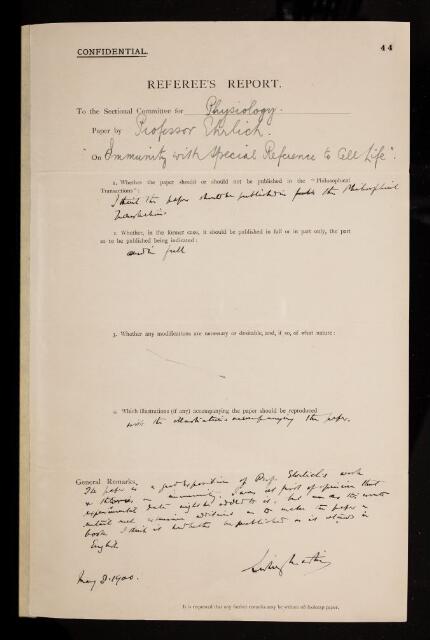 CONFIDENTIAL.
44
REFEREE'S REPORT.
To the Sectional Committee for Physiology.
Paper by Professor Ehrlich.
"On Immunity with Special Reference to Cell Life".
1. Whether the paper should or should not be published in the "Philosophical
Transactions":
I think the paper should be published in the Philosophical
Transactions
2. Whether, in the former case, it should be published in full or in part only, the part
so to be published being indicated:
and in full
3. Whether any modifications are necessary or desirable, and, if so, of what nature:
4. Which illustrations (if any) accompanying the paper should be reproduced
with the illustrations accompanying the paper.
General Remarks.
The paper is a good exposition of Prof. Ehrlich's work
& on immunity. I was at first of opinion that
experimental data might be added to it, but as this would
such additions as to make the paper a
book I think it had better be published as it stands in
English
May 8. 1900.
It is requested that any further remarks may be written on foolscap paper.